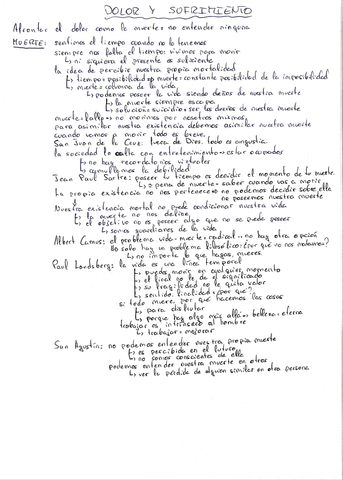 DOLOR Y SUFRIMIENTO
Afrontar el dolor como la muerte: no entender ninguna
MUERTE: sentimos el tiempo cuando no lo tenemos
siempre nos falta el tiempo: vivimos para morir
↳ ni siquiera el presente es suficiente
la idea de percibir nuestra propia mortalidad
↳ tiempo = posibilidad → muerte = constante posibilidad de la imposibilidad
↳ muerte: columna de la vida
↳ podemos poseer la vida siendo dueños de nuestra muerte
↳ la muerte siempre escapa
↳ solución = suicidio = ser los dueños de nuestra muerte
muerte: fallo → no morimos por nosotros mismos
para asimilar nuestra existencia debemos asimilar nuestra muerte
cuando vamos a morir todo es breve
San Juan de la Cruz: fuera de Dios, todo es angustia
la sociedad lo calla con entretenimiento = estar ocupados
↳ no hay recordatorios vitales
↳ camuflamos la debilidad
Jean Paul Sartre: poseer tu tiempo es decidir el momento de tu muerte
↳ o pena de muerte = saber cuando vas a morir
la propia existencia no nos pertenece = no podemos decidir sobre ella
↓ no poseemos nuestra muerte
Nuestra existencia mortal no puede condicionar nuestra vida
↳ la muerte no nos define
↳ el objetivo no es poseer algo que no se puede poseer
↳ somos guardianes de la vida
Albert Camus: el problema vida-muerte = radical → no hay otra opción
Tan solo hay un problema filosófico: ¿por qué no nos matamos?
↳ no importa lo que hagas, mueres
Paul Landsberg: la vida es una línea temporal
↳ puedes morir en cualquier momento
↳ el final no le da el significado
↳ su fragilidad no le quita valor
↳ sentido, finalidad = ¿por qué?
si todo muere, por qué hacemos las cosas
↳ para disfrutar
↳ porque hay algo más allá = belleza = eterna
trabajar es intrínseco al hombre
↳ trabajar = mejorar
San Agustín: no podemos entender nuestra propia muerte
↳ es percibida en el futuro
↳ no somos conscientes de ella
podemos entender nuestra muerte en otros
↳ ver la pérdida de alguien similar en otra persona